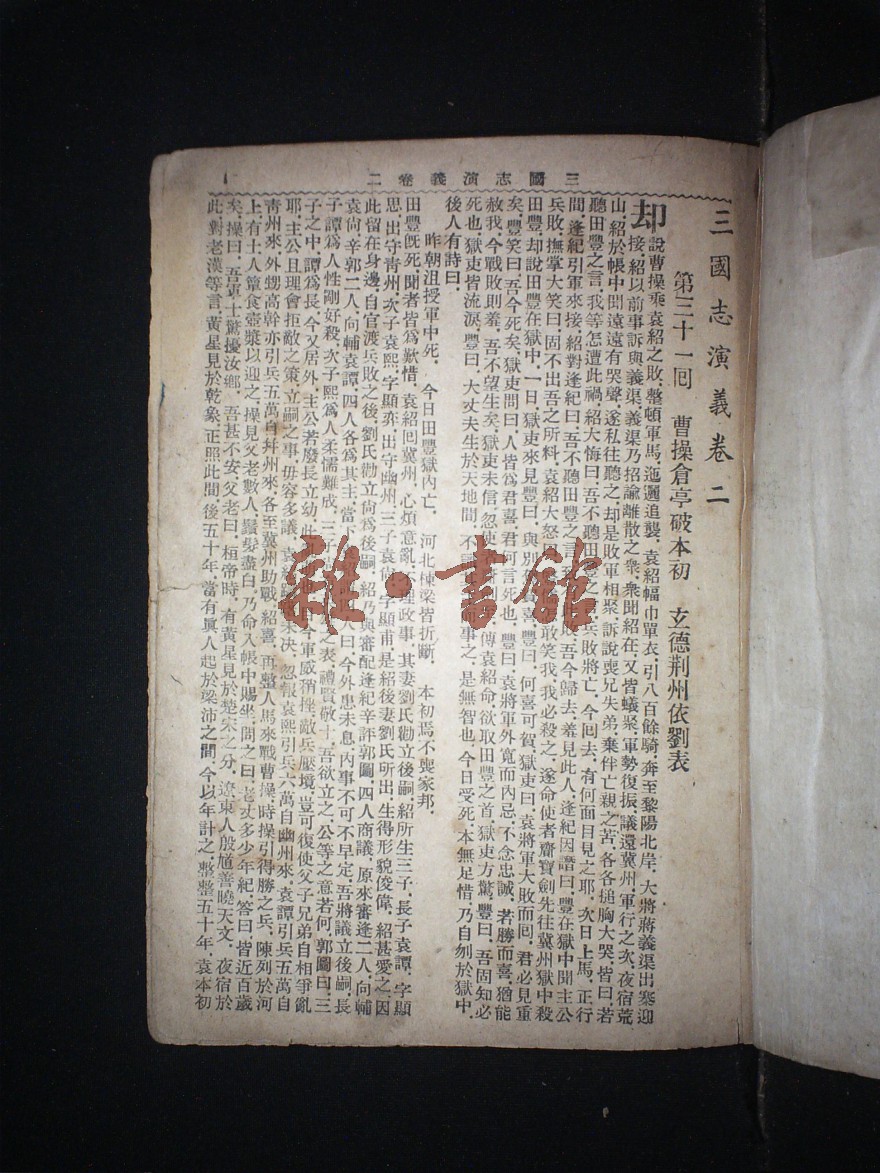 三國志演義卷二
三國志演義卷二
第三十一回　曹操倉亭破本初　玄德荆州依劉表
却說曹操乘袁紹之敗、整頓軍馬、迤邐追襲、袁紹幅巾單衣、引八百餘騎、奔至黎陽北岸、大將蔣義渠出寨迎
接、紹以前事訴與義渠、義渠乃招諭離散之衆、衆聞紹在、又皆蟻聚、軍勢復振、議還冀州、軍行之次、夜宿荒
山、紹於帳中聞遠遠有哭聲、遂私往聽之、却是敗軍相聚、訴說喪兄失弟、棄伴亡親之苦、各各搥胸大哭、皆曰、若
聽田豐之言、我等怎遭此禍、紹大悔曰、吾不聽田豐之言、兵敗將亡、今回去、有何面目見之耶、次日上馬、正行
間、逢紀引軍來接、紹對逢紀曰、吾不聽田豐之言、敗、吾今歸去、羞見此人、逢紀因譖曰、豐在獄中聞主公
兵敗、撫掌大笑曰、固不出吾之所料、袁紹大怒曰、敢笑我、我必殺之、遂命使者齎寶劍先往冀州獄中殺
田豐、却說田豐在獄中、一日、獄吏來見豐曰、與別喜、豐曰、何喜可賀、獄吏曰、袁將軍大敗而回、君必見重
矣、豐笑曰、吾今死矣、獄吏問曰、人皆爲君喜、君何言死也、豐曰、袁將軍外寬而內忌、不念忠誠、若勝而喜、猶能
赦我、今戰敗則羞、吾不望生矣、獄吏未信、忽使傳袁紹命、欲取田豐之首、獄吏方驚、豐曰、吾固知必
死也、獄吏皆流淚、豐曰、大丈夫生於天地間、不而事之、是無智也、今日受死、本無足惜、乃自刎於獄中、
後人有詩曰、
昨朝沮授軍中死、　今日田豐獄內亡、　河北棟梁皆折斷、　本初焉不喪家邦、
田豐既死、聞者皆爲歎惜、袁紹回冀州、心煩意亂、不理政事、其妻劉氏勸立後嗣、紹所生三子、長子袁譚、字顯
思、出守靑州、次子袁熙、字顯奕、出守幽州、三子袁尙、字顯甫、是紹後妻劉氏所出、生得形貌俊偉、紹甚愛之、因
此留在身邊、自官渡兵敗之後、劉氏勸立尙爲後嗣、紹乃與審配逢紀辛評郭圖、四人商議、原來審逢二人、向輔
袁尙、辛郭二人、向輔袁譚、四人各爲其主、當下人曰、今外患未息、內事不可不早定、吾將議立後嗣、長
子譚爲人性剛好殺、次子熙爲人柔懦難成、三子之表、禮賢敬士、吾欲立之、公等之意若何、郭圖曰、三
子之中、譚爲長、今又居外、主公若廢長立幼、此今軍威稍挫、敵兵壓境、豈可復使父子兄弟自相爭亂
耶、主公且理會拒敵之策、立嗣之事、毋容多議、袁紹未決、忽報袁熙引兵六萬自幽州來、袁譚引兵五萬自
靑州來、外甥高幹亦引兵五萬自幷州來、各至冀州助戰、紹喜、再整人馬來戰曹操、時操引得勝之兵、陳列於河
上、有土人簞食壺漿以迎之、操見父老數人、鬚髮盡白、乃命入帳中賜坐、問之曰、老丈多少年紀、答曰、皆近百歲
矣、操曰、吾軍士驚擾汝鄉、吾甚不安、父老曰、桓帝時、有黃星見於楚宋之分、遼東人殷馗善曉天文、夜宿於
此、對老漢等言、黃星見於乾象、正照此間、後五十年、當有眞人起於梁沛之間、今以年計之、整整五十年、袁本初
雜·書館